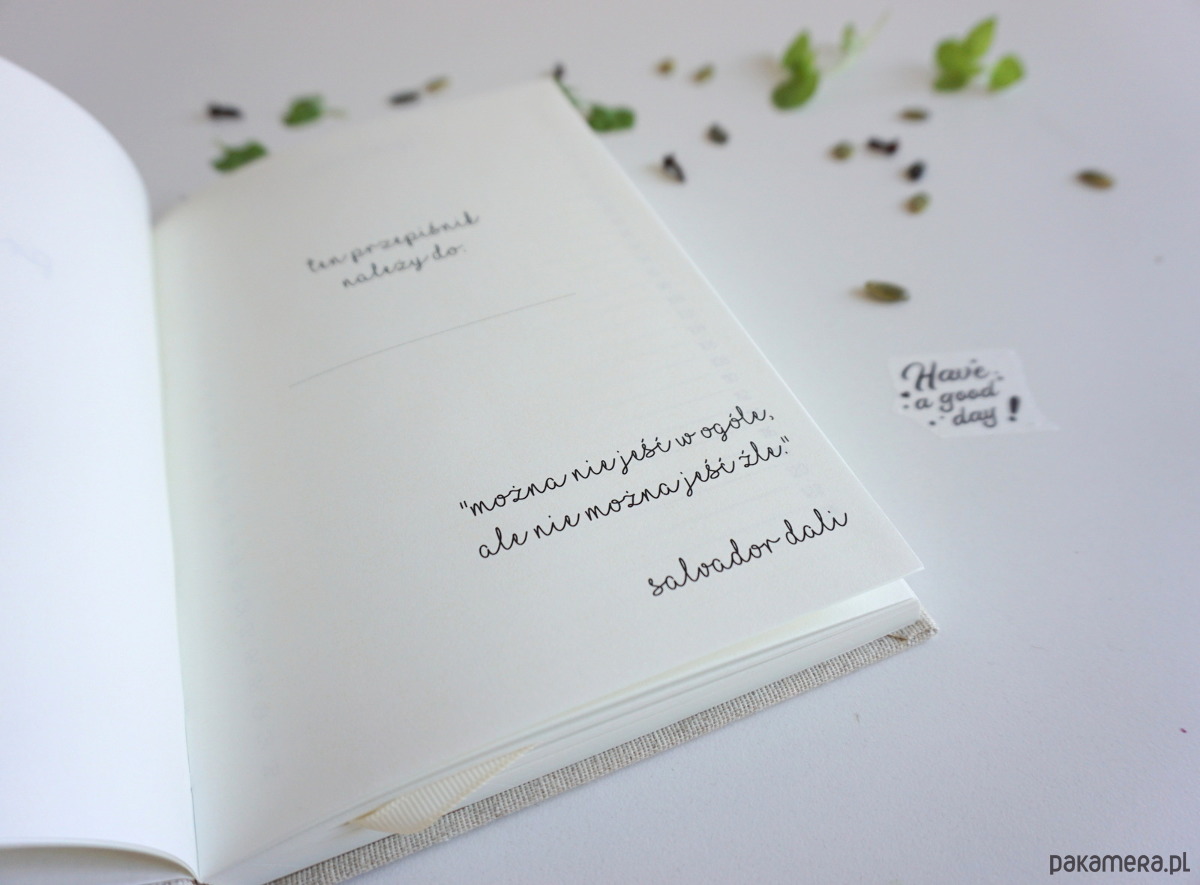 ten przepiśnik
należy do:
"można nie jeść w ogóle,
ale nie można jeść źle."
salvador dali
Have
a good
day!
pakamera.pl